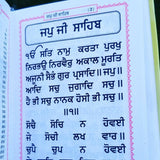 ਜਪੁ ਜੀ ਸਾਹਿਬ
(੨)
ਜਪੁ ਜੀ ਸਾਹਿਬ
ੴ ਸਤਿ ਨਾਮੁ ਕਰਤਾ ਪੁਰਖੁ
ਨਿਰਭਉ ਨਿਰਵੈਰੁ ਅਕਾਲ ਮੂਰਤਿ
ਅਜੂਨੀ ਸੈਭੰ ਗੁਰ ਪ੍ਰਸਾਦਿ ॥ਜਪੁ॥
ਆਦਿ ਸਚੁ ਜੁਗਾਦਿ ਸਚੁ ॥
ਹੈ ਭੀ ਸਚੁ ਨਾਨਕ ਹੋਸੀ ਭੀ ਸਚੁ ॥
॥੧॥
ਸੋਚੈ ਸੋਚਿ ਨ ਹੋਵਈ
ਜੇ ਸੋਚੀ ਲਖ ਵਾਰ ॥
ਚੁਪੈ ਚੁਪ ਨ ਹੋਵਈ